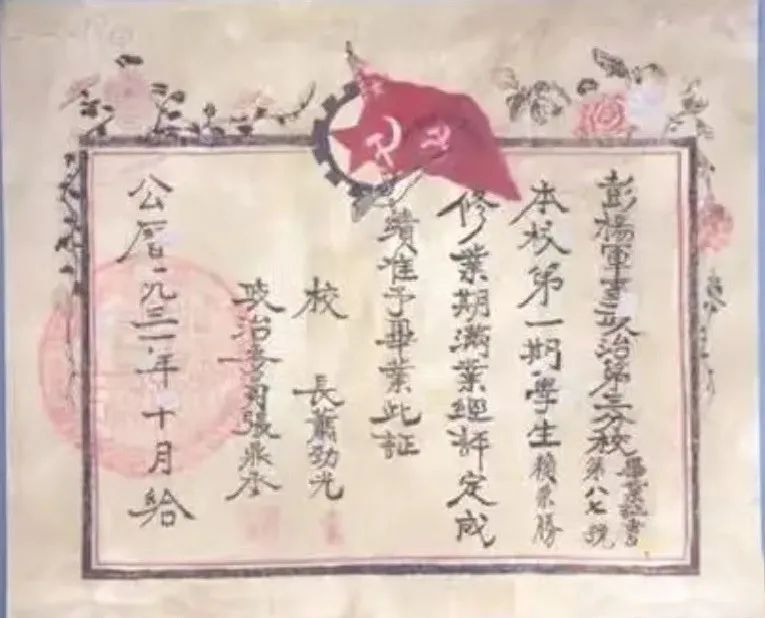 彭楊軍事政治第三分校畢業証書第八七號
本校第一期學生賴榮勝
修業期滿業經評定成
績准予畢業此証
校長蕭勁光
政治委員張鼎丞
公曆一九三一年十月給